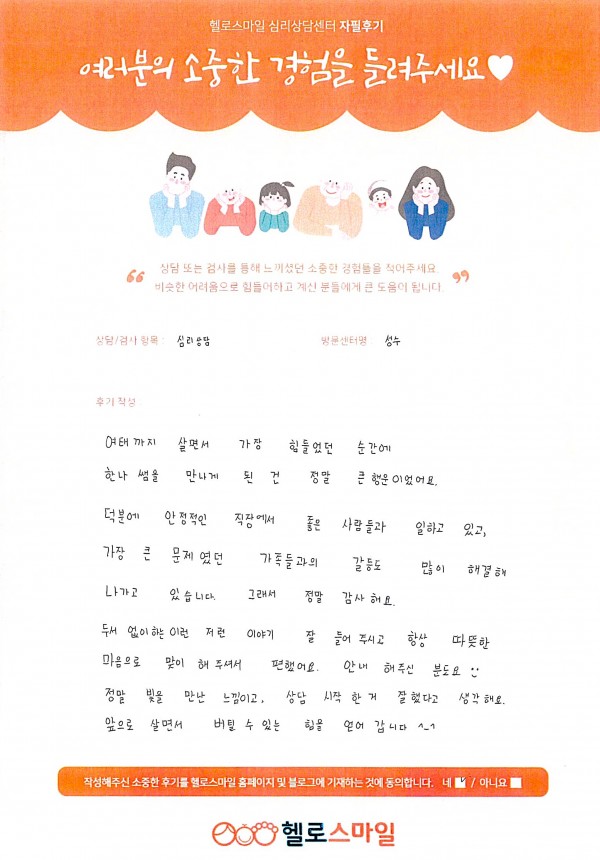 헬로스마일 심리상담센터 자필후기
여러분의 소중한 경험을 들려주세요
상담 또는 검사를 통해 느끼셨던 소중한 경험들을 적어주세요.
비슷한 어려움으로 힘들어하고 계신 분들에게 큰 도움이 됩니다.
상담/검사 항목 : 심리상담 방문센터명 : 성수
후기 작성
여태까지 살면서 가장 힘들었던 순간에
한나 쌤을 만나게 된 건 정말 큰 행운이었어요.
덕분에 안정적인 직장에서 좋은 사람들과 일하고 있고,
가장 큰 문제였던 가족들과의 갈등도 많이 해결해
나가고 있습니다. 그래서 정말 감사해요.
두서 없이하는 이런 저런 이야기 잘 들어 주시고 항상 따뜻한
마음으로 맞이 해 주셔서 편했어요. 안내 해주신 분도요 :)
정말 빛을 만난 느낌이고, 상담 시작 한 거 잘했다고 생각해요.
앞으로 살면서 버틸 수 있는 힘을 얻어 갑니다 ^-^
작성해주신 소중한 후기를 헬로스마일 홈페이지 및 블로그에 기재하는 것에 동의합니다. 네 / 아니요
헬로스마일